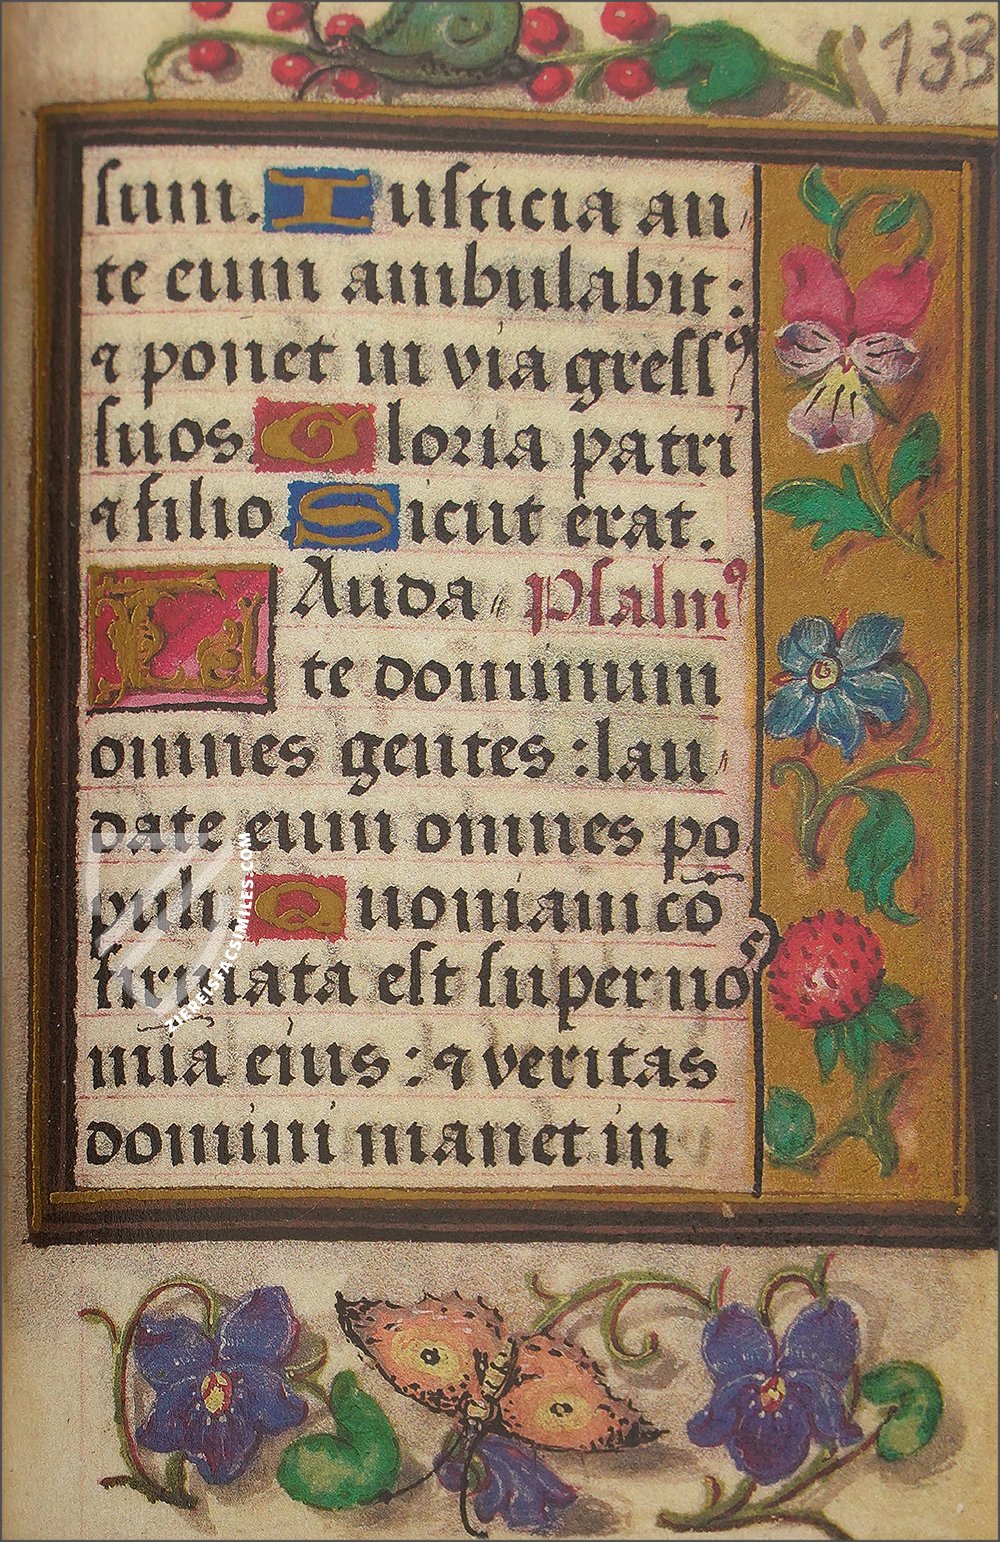 133
sum. Iusticia an
te eum ambulabit:
⁊ ponet in via gressꝰ
suos Gloria patri
⁊ filio. Sicut erat.
LAuda Psalmꝰ
te dominum
omnes gentes : lau
date eum omnes po
puli. Quoniam cō
firmata est super nos
mi͠a eius : ⁊ veritas
domini manet in
ZIEREISFACSIMILES.COM